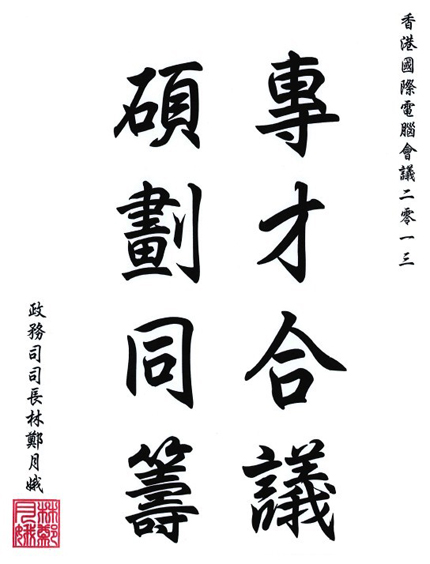 香港國際電腦會議二零一三
專才合議
碩劃同籌
政務司司長林鄭月娥
林鄭
月娥